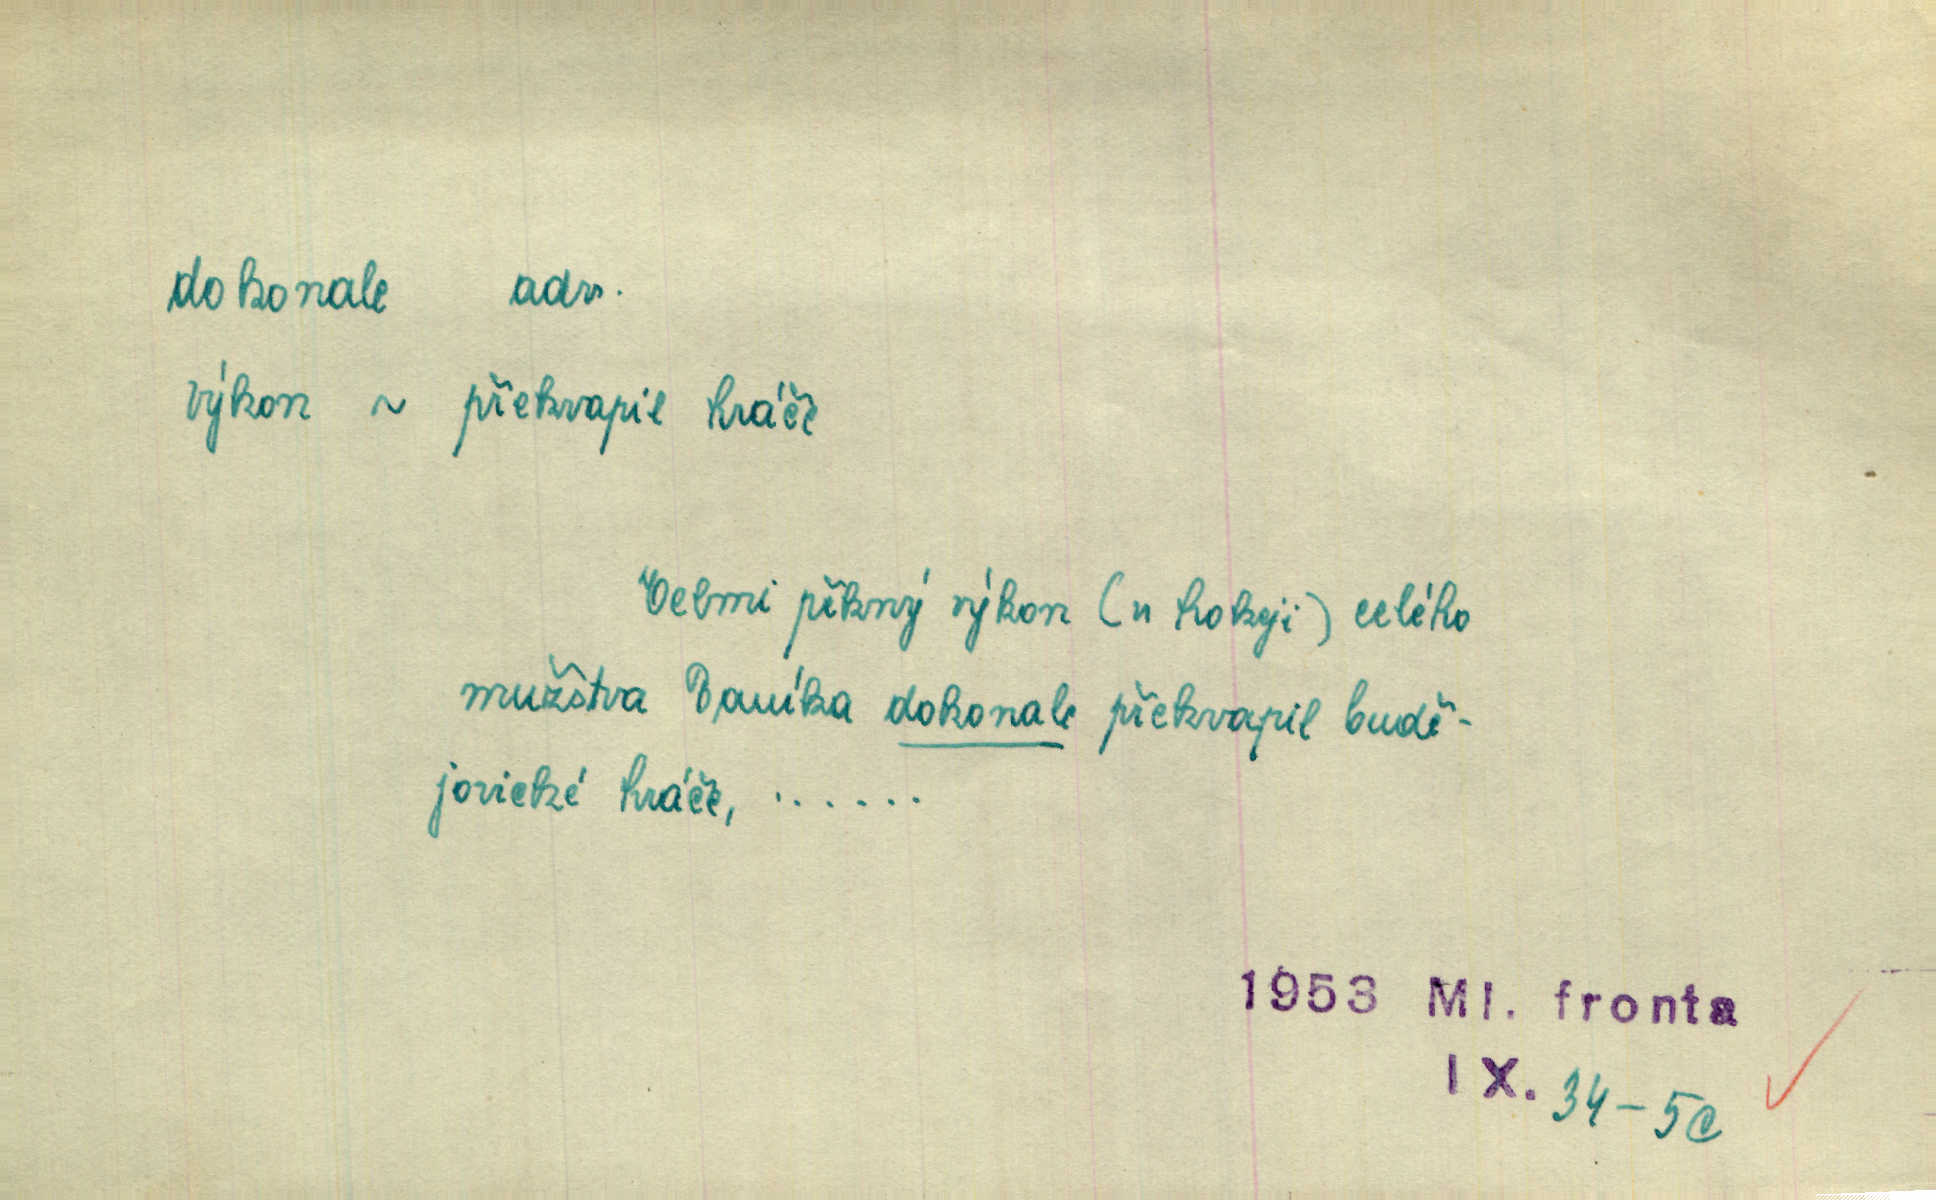 dokonale adv.
výkon ~ překvapil hráče
Velmi pěkný výkon (v hokeji) celého
mužstva Baníka dokonale překvapil budě-
jovické hráče, ......
1953 Ml. fronta
IX. 34-5c